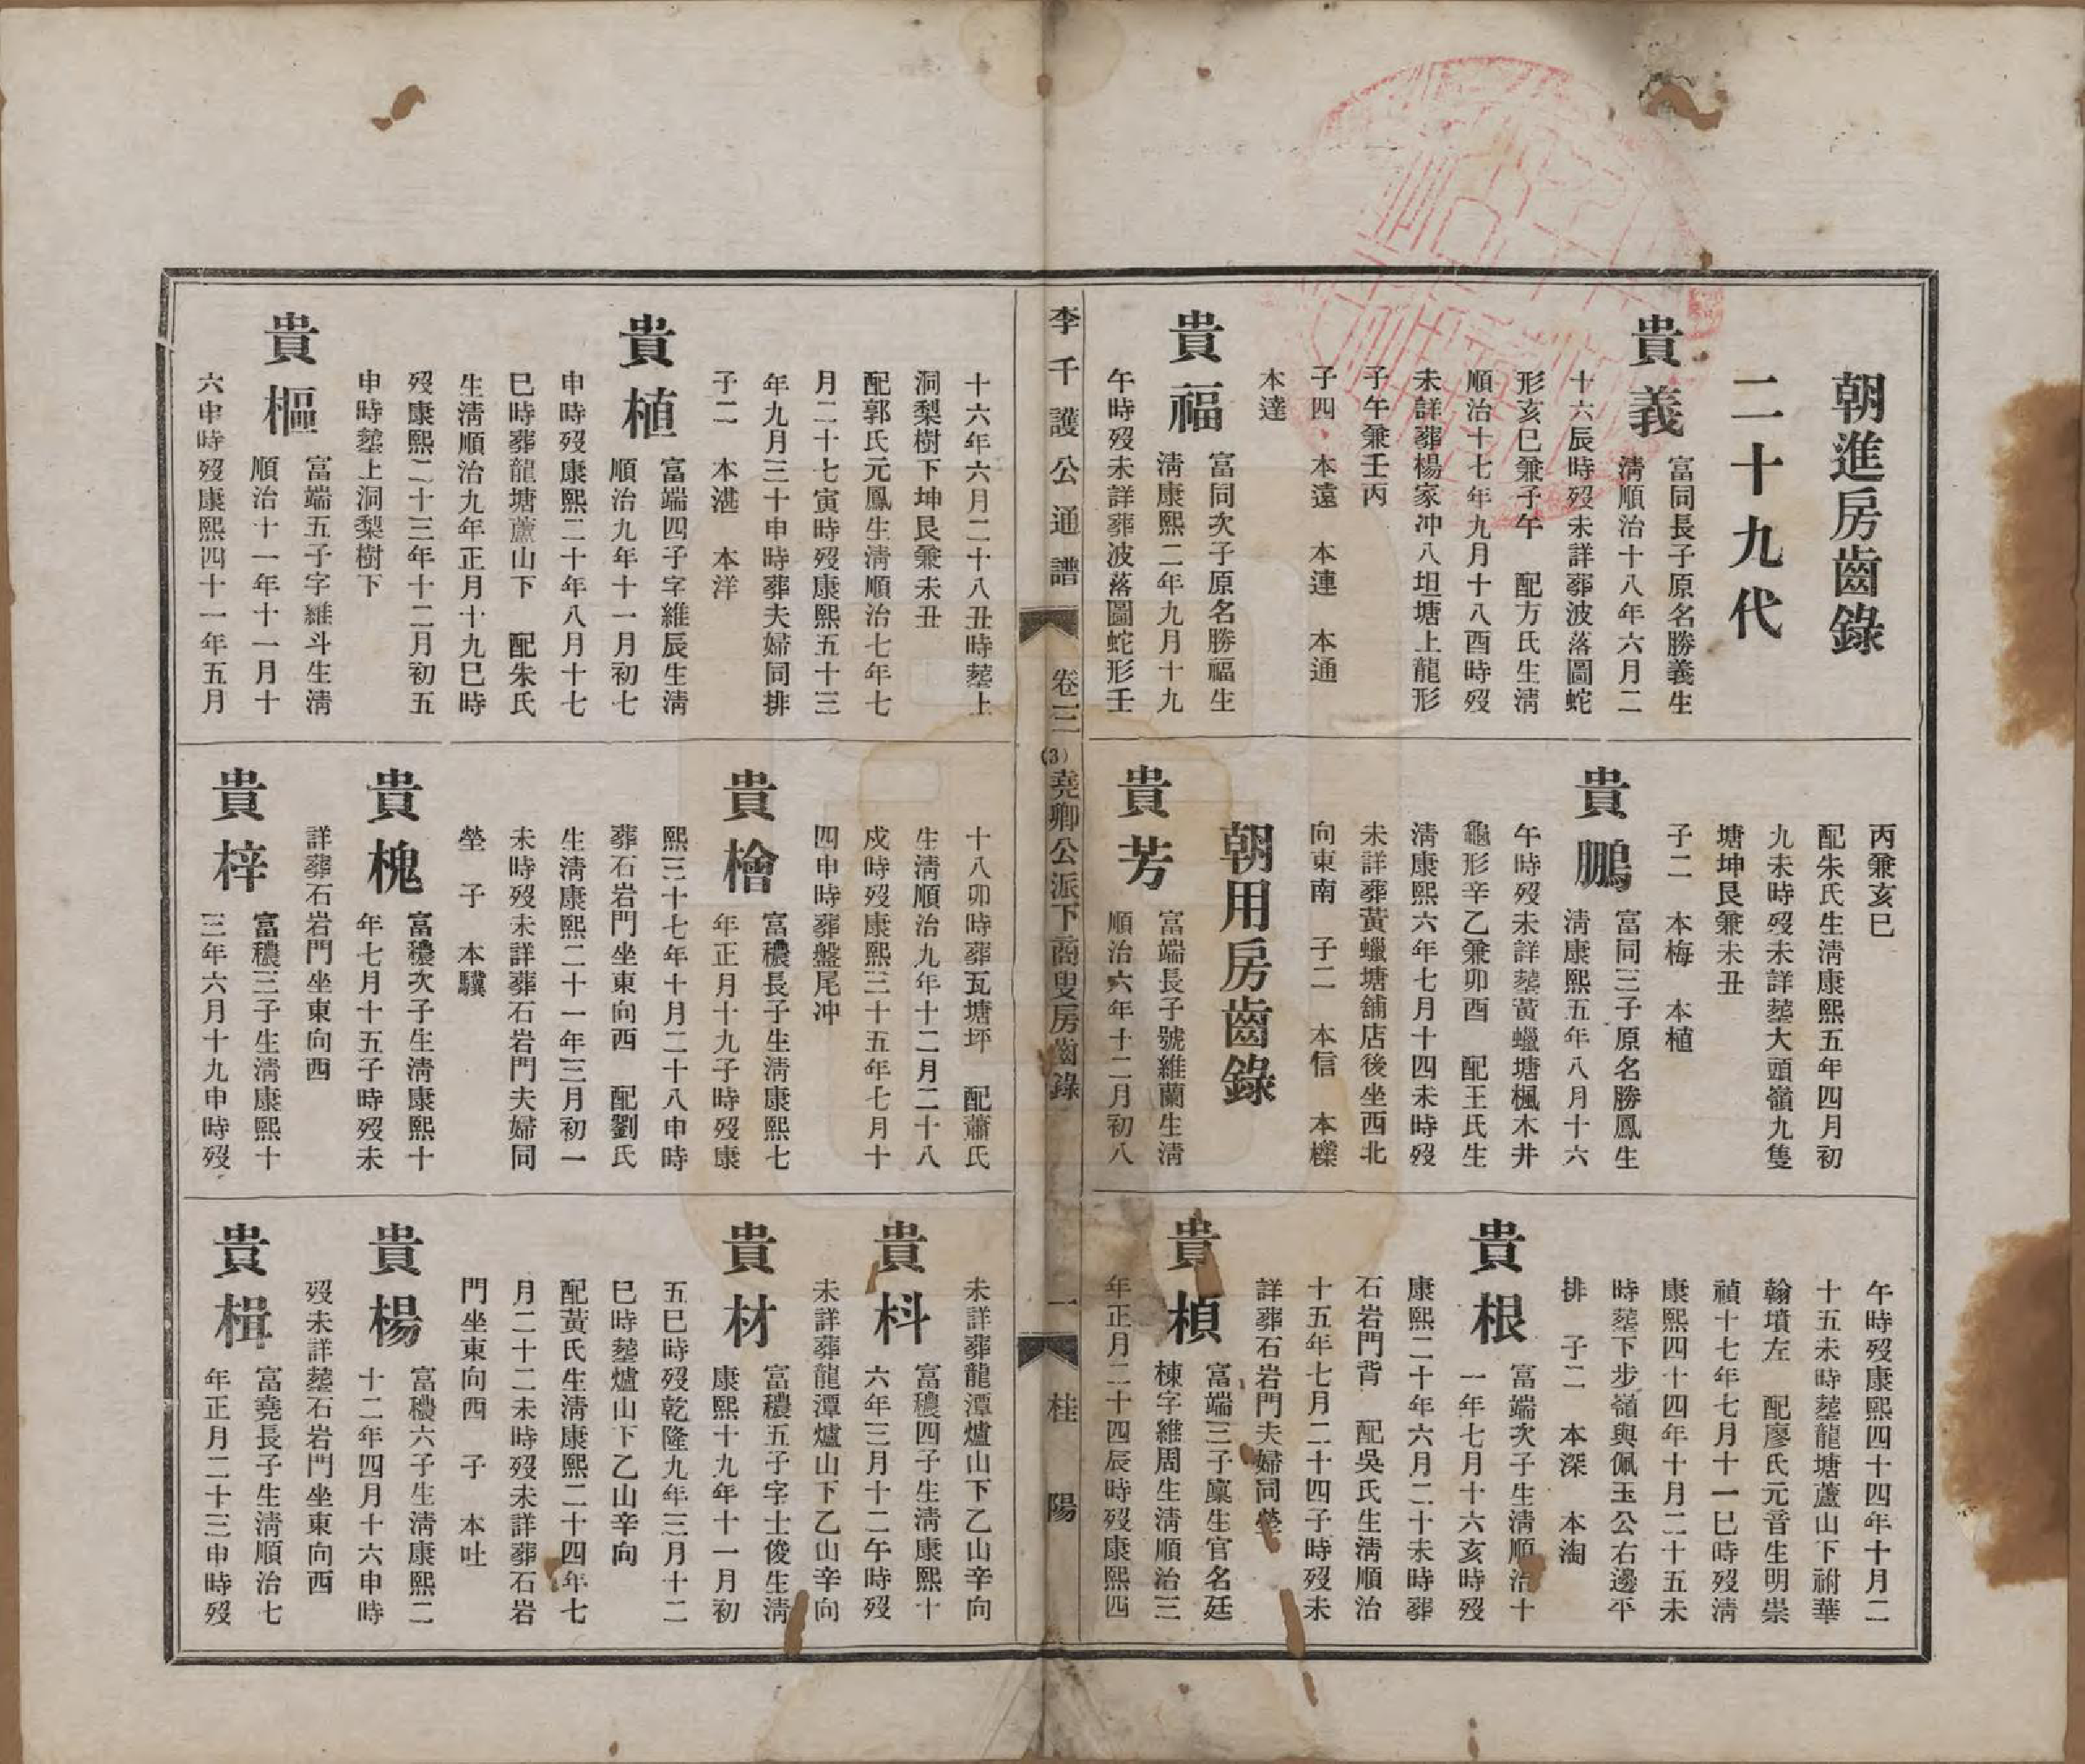 朝進房齒錄
二十九代
貴義
富同長子原名勝義生
淸順治十八年六月二
十六辰時歿未詳葬波落圖蛇
形亥巳兼子午　配方氏生淸
順治十七年九月十八酉時歿
未詳葬楊家冲八坦塘上龍形
子午兼壬丙
子四　本遠　本連　本通
本達
貴福
富同次子原名勝福生
淸康熙二年九月十九
午時歿未詳葬波落圖蛇形壬
丙兼亥巳
配朱氏生淸康熙五年四月初
九未時歿未詳塟大頭嶺九隻
塘坤艮兼未丑
子二　本梅　本植
貴鵬
富同三子原名勝鳳生
淸康熙五年八月十六
午時歿未詳塟黃蠟塘楓木井
龜形辛乙兼卯酉　配王氏生
淸康熙六年七月十四未時歿
未詳葬黃蠟塘舖店後坐西北
向東南　子二　本信　本檪
朝用房齒錄
貴芳
富端長子號維蘭生淸
順治六年十二月初八
午時歿康熙四十四年十月二
十五未時塟龍塘蘆山下祔華
翰墳左　配廖氏元音生明崇
禎十七年七月十一巳時歿淸
康熙四十四年十月二十五未
時塟下步嶺與佩玉公右邊平
排　子二　本深　本淘
貴根
富端次子生淸順治十
一年七月十六亥時歿
康熙二十年六月二十未時葬
石岩門背　配吳氏生淸順治
十五年七月二十四子時歿未
詳葬石岩門夫婦同塋
貴楨
富端三子廩生官名廷
棟字維周生淸順治三
年正月二十四辰時歿康熙四
李千護公通譜
卷三
(3)堯卿公派下商叟房齒錄
一
桂陽
十六年六月二十八丑時塟上
洞梨樹下坤艮兼未丑
配郭氏元鳳生淸順治七年七
月二十七寅時歿康熙五十三
年九月三十申時葬夫婦同排
子二　本湛　本洋
貴植
富端四子字維辰生淸
順治九年十一月初七
申時歿康熙二十年八月十七
巳時葬龍塘蘆山下　配朱氏
生淸順治九年正月十九巳時
歿康熙二十三年十二月初五
申時塟上洞梨樹下
貴樞
富端五子字維斗生淸
順治十一年十一月十
六申時歿康熙四十一年五月
十八卯時葬瓦塘坪　配蕭氏
生淸順治九年十二月二十八
戍時歿康熙三十五年七月十
四申時葬盤尾冲
貴檜
富穠長子生淸康熙七
年正月十九子時歿康
熙三十七年十月二十八申時
葬石岩門坐東向西　配劉氏
生淸康熙二十一年三月初一
未時歿未詳葬石岩門夫婦同
塋　子　本驥
貴槐
富穠次子生淸康熙十
年七月十五子時歿未
詳葬石岩門坐東向西
貴梓
富穠三子生淸康熙十
三年六月十九申時歿
未詳葬龍潭爐山下乙山辛向
貴枓
富穠四子生淸康熙十
六年三月十二午時歿
未詳葬龍潭爐山下乙山辛向
貴材
富穠五子字士俊生淸
康熙十九年十一月初
五巳時歿乾隆九年三月十二
巳時塟爐山下乙山辛向
配黃氏生淸康熙二十四年七
月二十二未時歿未詳葬石岩
門坐東向西　子　本吐
貴楊
富穠六子生淸康熙二
十二年四月十六申時
歿未詳塟石岩門坐東向西
貴楫
富堯長子生淸順治七
年正月二十三申時歿